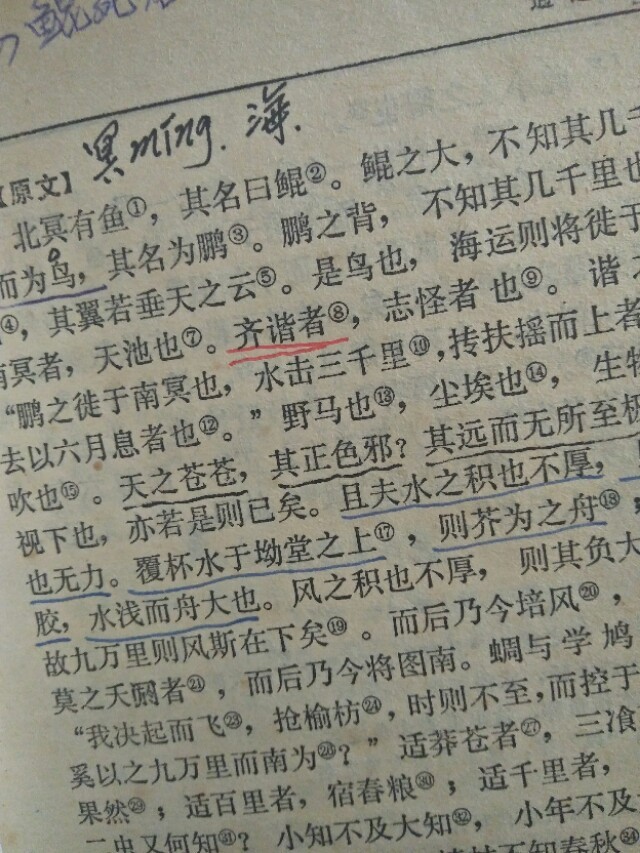 鲲
冥míng. 海.
【原文】
北冥有鱼①，其名曰鲲②。鲲之大，不知其几千
而为鸟，其名为鹏③。鹏之背，不知其几千里也
④，其翼若垂天之云⑤。是鸟也，海运则将徙于
南冥者，天池也⑦。齐谐者⑧，志怪者也⑨。谐
“鹏之徙于南冥也，水击三千里⑩，抟扶摇而上者
去以六月息者也⑫。”野马也⑬，尘埃也⑭，生物
吹也⑮。天之苍苍，其正色邪？其远而无所至极
视下也，亦若是则已矣。且夫水之积也不厚，
也无力。覆杯水于坳堂之上⑰，则芥为之舟⑱，
胶，水浅而舟大也。风之积也不厚，则其负大
故九万里则风斯在下矣⑲。而后乃今培风⑳，
莫之夭阏者㉑，而后乃今将图南。蜩与学鸠
“我决起而飞㉓，抢榆枋㉔，时则不至，而控于
奚以之九万里而南为㉖？”适莽苍者㉗，三飡
果然㉙；适百里者，宿舂粮㉚；适千里者，
二虫又何知㉛？小知不及大知㉜，小年不及
不知春秋㉞